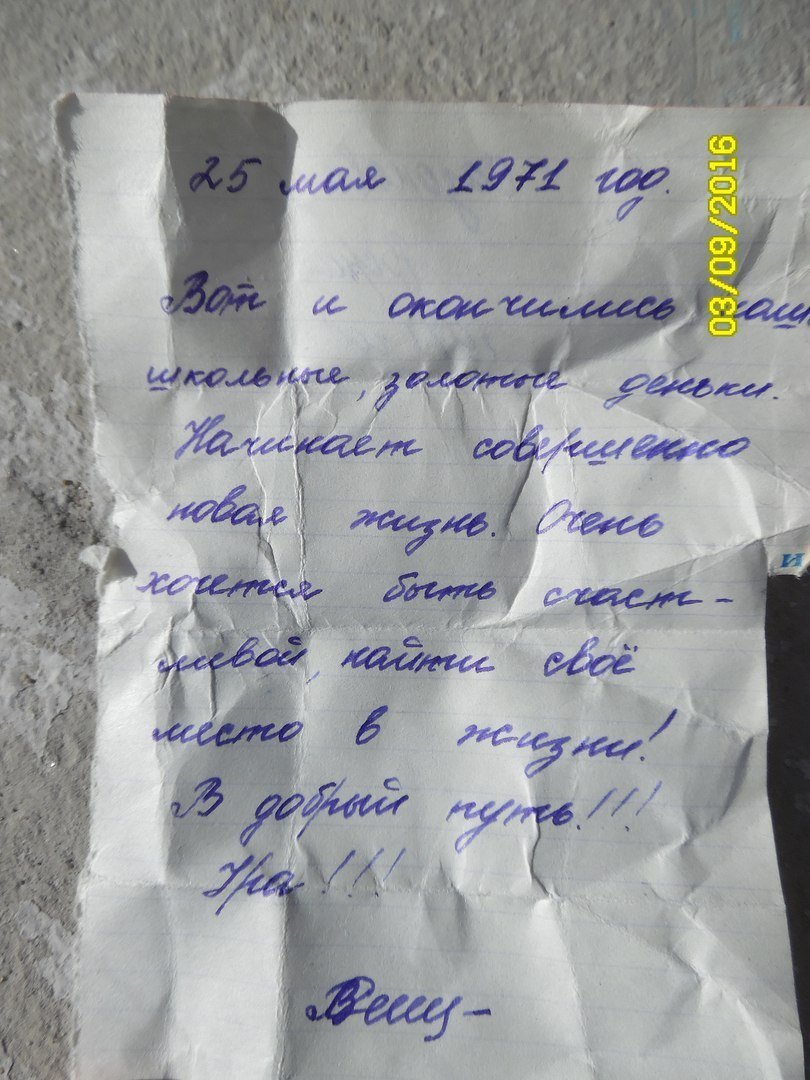 25 мая 1971 год.
03/09/2016
Вот и окончились
школьные, золотые деньки.
Начинает совершенно
новая жизнь. Очень
и
хочется быть счаст-
ливой, найти своё
место в жизни!
В добрый путь!!!
Ура!!!